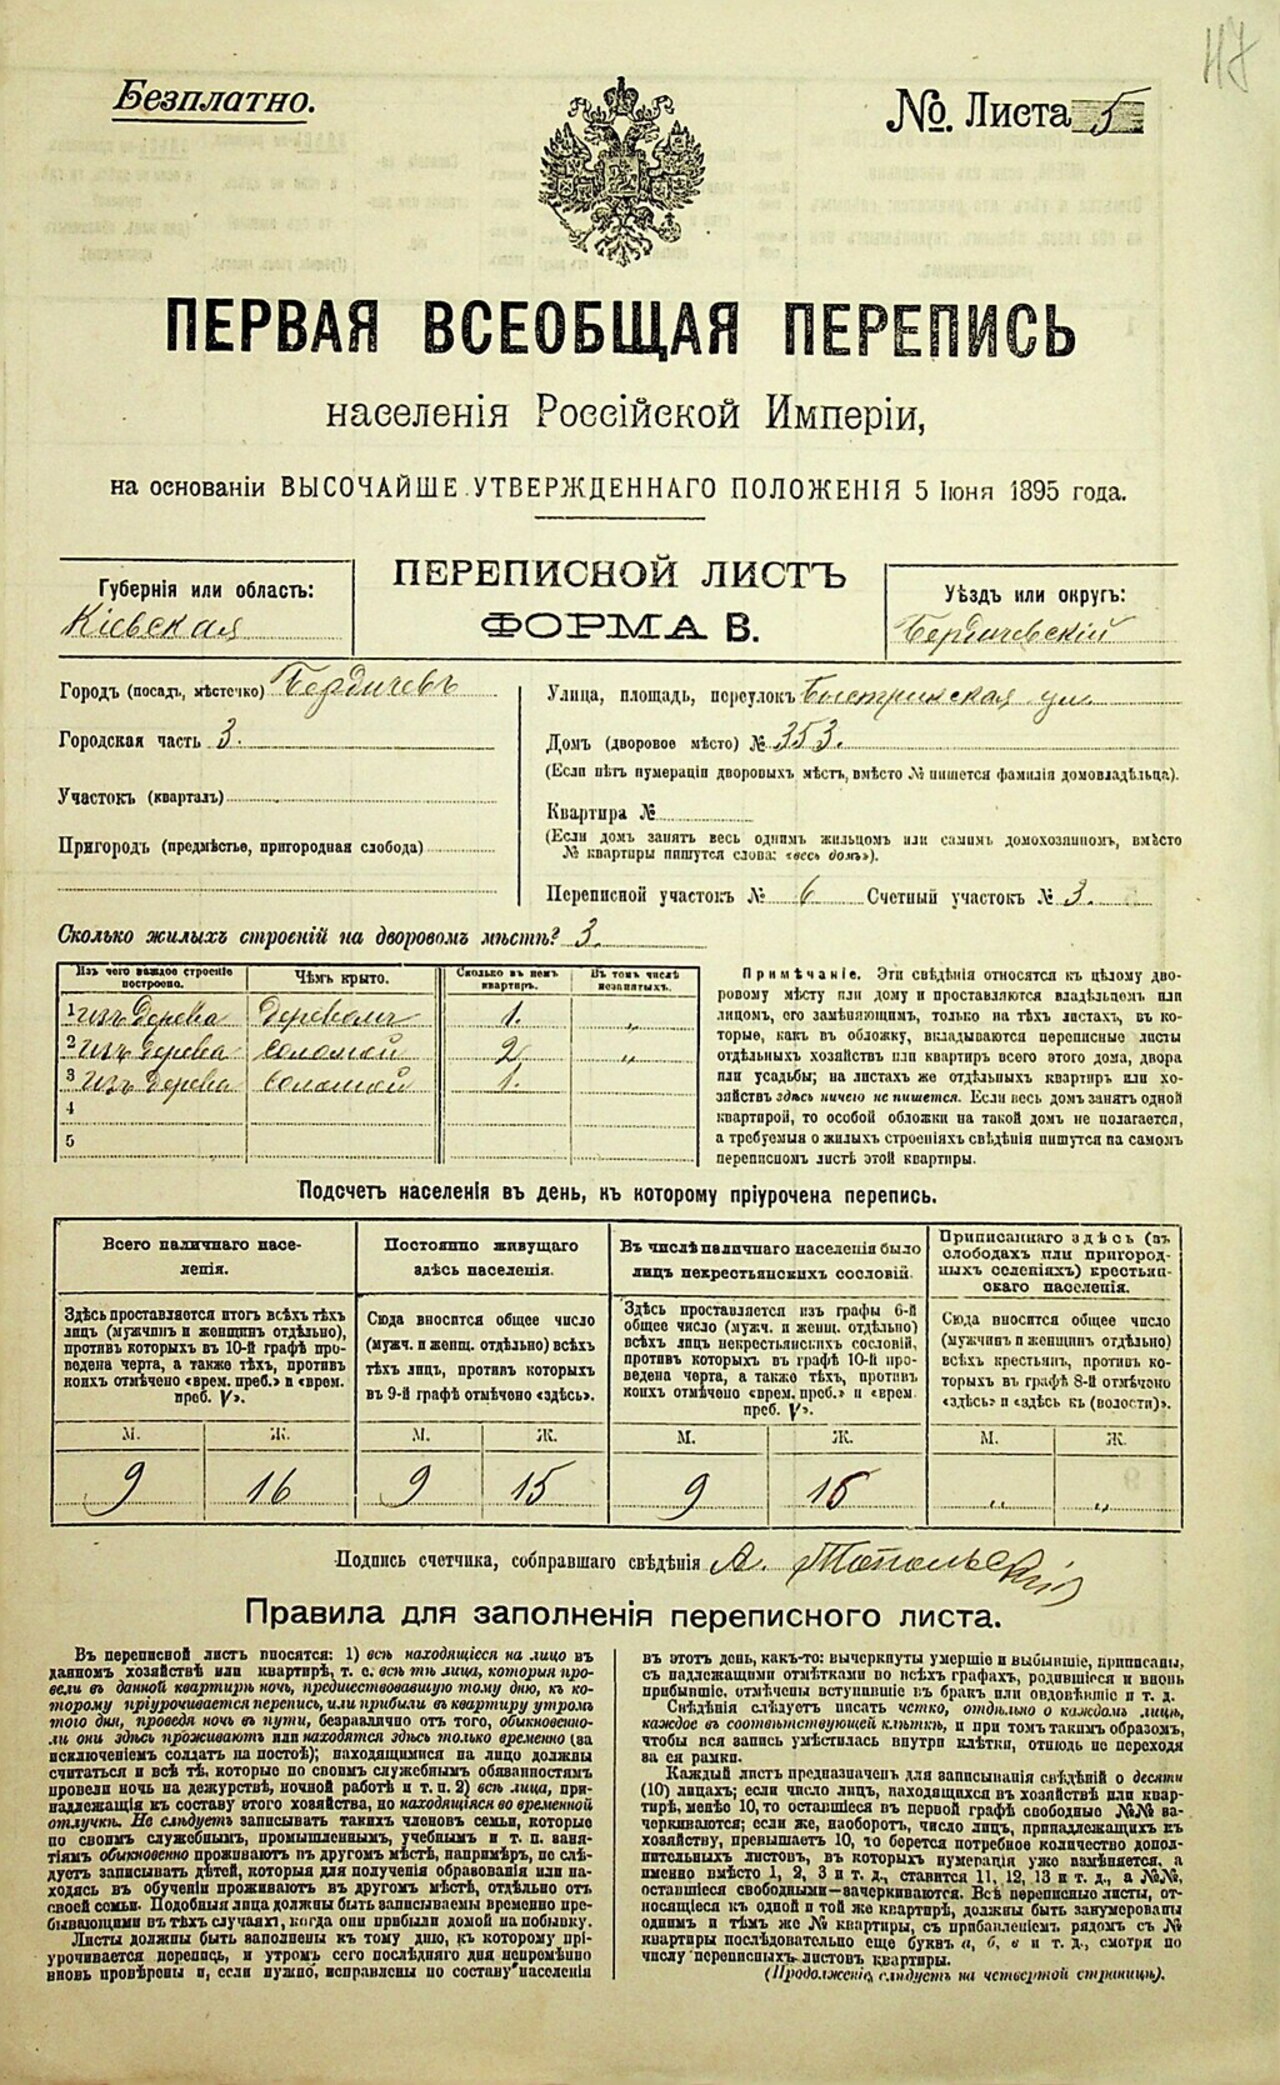 47
Безплатно.
№. Листа 5
ПЕРВАЯ ВСЕОБЩАЯ ПЕРЕПИСЬ
населенія Россійской Имперіи,
на основаніи ВЫСОЧАЙШЕ УТВЕРЖДЕННАГО ПОЛОЖЕНІЯ 5 Іюня 1895 года.
ПЕРЕПИСНОЙ ЛИСТЪ
ФОРМА В.
Губернія или область:
Кіевская
Уѣздъ или округъ:
Бердичевскій
Городъ (посадъ, мѣстечко) Бердичевъ
Городская часть 3.
Участокъ (кварталъ)
Пригородъ (предмѣстье, пригородная слобода)
Улица, площадь, переулокъ Быстринская ул.
Домъ (дворовое мѣсто) № 353.
(Если нѣтъ нумераціи дворовыхъ мѣстъ, вмѣсто № пишется фамилія домовладѣльца).
Квартира №
(Если домъ занятъ весь однимъ жильцомъ или самимъ домохозяиномъ, вмѣсто
№ квартиры пишутся слова: «весь домъ»).
Переписной участокъ № 6 Счетный участокъ № 3.
Сколько жилыхъ строеній на дворовомъ мѣстѣ? 3.
Изъ чего каждое строеніе построено. Чѣмъ крыто. Сколько въ немъ квартиръ. Въ томъ числѣ незанятыхъ.
1 изъ дерева деревомъ 1. „
2 изъ дерева соломой 2 „
3 изъ дерева соломой 1.
4
5
Примѣчаніе. Эти свѣдѣнія относятся къ цѣлому дво-
ровому мѣсту или дому и проставляются владѣльцомъ или
лицомъ, его замѣняющимъ, только на тѣхъ листахъ, въ ко-
торые, какъ въ обложку, вкладываются переписные листы
отдѣльныхъ хозяйствъ или квартиръ всего этого дома, двора
или усадьбы; на листахъ же отдѣльныхъ квартиръ или хо-
зяйствъ здѣсь ничего не пишется. Если весь домъ занятъ одной
квартирой, то особой обложки на такой домъ не полагается,
а требуемыя о жилыхъ строеніяхъ свѣдѣнія пишутся на самомъ
переписномъ листѣ этой квартиры.
Подсчетъ населенія въ день, къ которому пріурочена перепись.
Всего наличнаго насе-
ленія.
Здѣсь проставляется итогъ всѣхъ тѣхъ
лицъ (мужчинъ и женщинъ отдѣльно),
противъ которыхъ въ 10-й графѣ про-
ведена черта, а также тѣхъ, противъ
коихъ отмѣчено «врем. преб.» и «врем.
преб. V».
М. Ж.
9 16
Постоянно живущаго
здѣсь населенія.
Сюда вносится общее число
(мужч. и женщ. отдѣльно) всѣхъ
тѣхъ лицъ, противъ которыхъ
въ 9-й графѣ отмѣчено «здѣсь».
М. Ж.
9 15
Въ числѣ наличнаго населенія было
лицъ некрестьянскихъ сословій.
Здѣсь проставляется изъ графы 6-й
общее число (мужч. и женщ. отдѣльно)
всѣхъ лицъ некрестьянскихъ сословій,
противъ которыхъ въ графѣ 10-й про-
ведена черта, а также тѣхъ, противъ
коихъ отмѣчено «врем. преб.» и «врем.
преб. V».
М. Ж.
9 16
Приписаннаго здѣсь (въ
слободахъ или пригород-
ныхъ селеніяхъ) крестьян-
скаго населенія.
Сюда вносится общее число
(мужчинъ и женщинъ отдѣльно)
всѣхъ крестьянъ, противъ ко-
торыхъ въ графѣ 8-й отмѣчено
«здѣсь» и «здѣсь къ (волости)».
М. Ж.
„ „
Подпись счетчика, собиравшаго свѣдѣнія А. Топольскій
Правила для заполненія переписного листа.
Въ переписной листъ вносятся: 1) всѣ находящіеся на лицо въ
данномъ хозяйствѣ или квартирѣ, т. е. всѣ тѣ лица, которыя про-
вели въ данной квартирѣ ночь, предшествовавшую тому дню, къ ко-
торому пріурочивается перепись, или прибыли въ квартиру утромъ
того дня, проведя ночь въ пути, безразлично отъ того, обыкновенно-
ли они здѣсь проживаютъ или находятся здѣсь только временно (за
исключеніемъ солдатъ на постоѣ); находящимися на лицо должны
считаться и всѣ тѣ, которые по своимъ служебнымъ обязанностямъ
провели ночь на дежурствѣ, ночной работѣ и т. п. 2) всѣ лица, при-
надлежащія къ составу этого хозяйства, но находящіяся во временной
отлучкѣ. Не слѣдуетъ записывать такихъ членовъ семьи, которые
по своимъ служебнымъ, промышленнымъ, учебнымъ и т. п. заня-
тіямъ обыкновенно проживаютъ въ другомъ мѣстѣ, напримѣръ, не слѣ-
дуетъ записывать дѣтей, которыя для полученія образованія или на-
ходясь въ обученіи проживаютъ въ другомъ мѣстѣ, отдѣльно отъ
своей семьи. Подобныя лица должны быть записываемы временно пре-
бывающими въ тѣхъ случаяхъ, когда они прибыли домой на побывку.
Листы должны быть заполнены къ тому дню, къ которому прі-
урочивается перепись, и утромъ сего послѣдняго дня непремѣнно
вновь провѣрены и, если нужно, исправлены по составу населенія
въ этотъ день, какъ-то: вычеркнуты умершіе и выбывшіе, приписаны,
съ надлежащими отмѣтками во всѣхъ графахъ, родившіеся и вновь
прибывшіе, отмѣчены вступившіе въ бракъ или овдовѣвшіе и т. д.
Свѣдѣнія слѣдуетъ писать четко, отдѣльно о каждомъ лицѣ,
каждое въ соотвѣтствующей клѣткѣ, и при томъ такимъ образомъ,
чтобы вся запись умѣстилась внутри клѣтки, отнюдь не переходя
за ея рамки.
Каждый листъ предназначенъ для записыванія свѣдѣній о десяти
(10) лицахъ; если число лицъ, находящихся въ хозяйствѣ или квар-
тирѣ, менѣе 10, то оставшіеся въ первой графѣ свободные №№ за-
черкиваются; если же, наоборотъ, число лицъ, принадлежащихъ къ
хозяйству, превышаетъ 10, то берется потребное количество допол-
нительныхъ листовъ, въ которыхъ нумерація уже измѣняется, а
именно вмѣсто 1, 2, 3 и т. д., ставится 11, 12, 13 и т. д., а №№,
оставшіеся свободными—зачеркиваются. Всѣ переписные листы, от-
носящіеся къ одной и той же квартирѣ, должны быть занумерованы
однимъ и тѣмъ же № квартиры, съ прибавленіемъ рядомъ съ №
квартиры послѣдовательно еще буквъ а, б, в и т. д., смотря по
числу переписныхъ листовъ квартиры.
(Продолженіе слѣдуетъ на четвертой страницѣ).